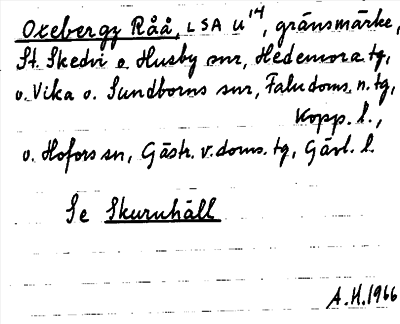 Oxebergz Råå, LSA U¹⁴, gränsmärke,
St. Skedvi o. Husby snr, Hedemora tg,
o. Vika o. Sundborns snr, Falu doms. n. tg,
Kopp. l.,
o. Hofors sn, Gästr. v. doms. tg, Gävl. l.
Se Skuruhäll
A.H. 1966